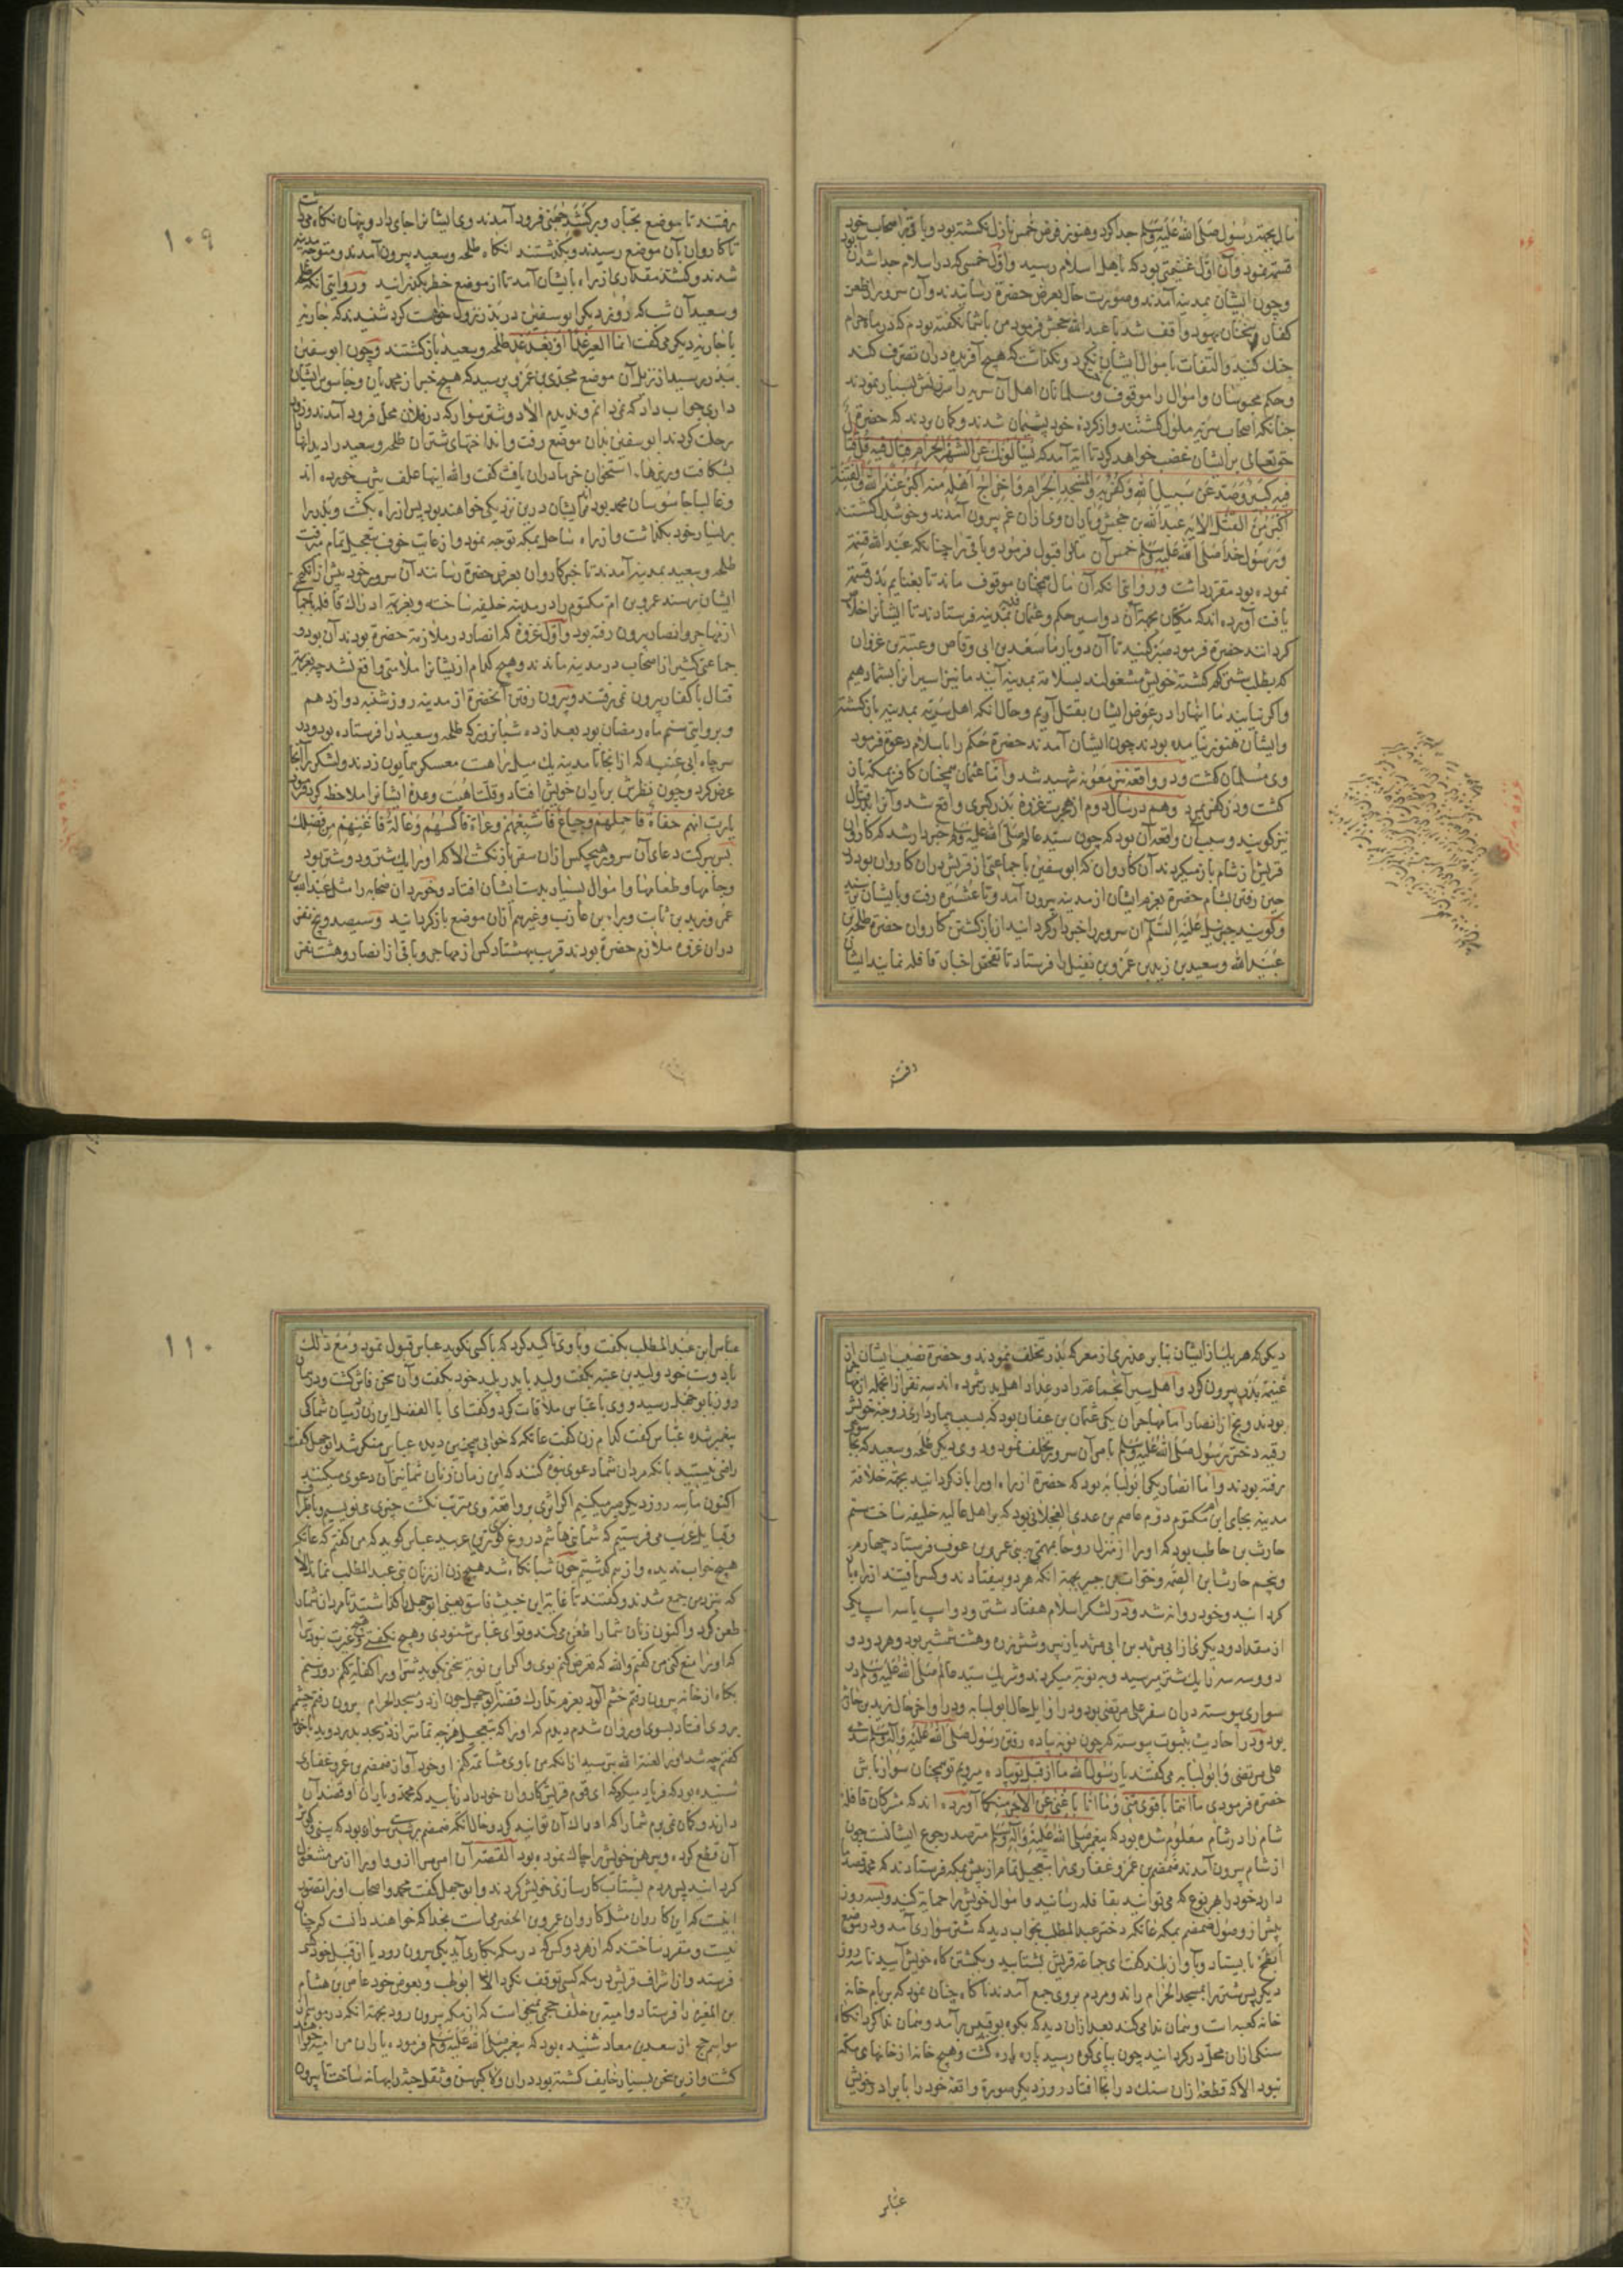 مال بجهة رسول صلى الله عليه وسلم جدا كرد وهنوز فرض خمس نازل نكشته بود وباقى بر اصحاب خود
قسمة نمود وآن اول غنيمتى بود كه باهل اسلام رسيد واول خمسى كه در اسلام جدا شد آن بود
وچون ايشان بمدينه آمدند وصورت حال بعرض حضرة رسانيدند وآن سرور از طعن
كفار وسخنان يهود واقف شد با عبد الله جحش فرمود من با شما نكفته بودم كه در ماه حرام
جنك كنيد والتفات باموال ايشان نكرد ونكذاشت كه هيچ آفريده در آن تصرف كند
وحكم محبوسان واموال را موقوف ومسلمانان اهل آن سريه را سرزنش بسيار نمودند
چنانكه اصحاب سريه ملول كشتند واز كرده خود پشيمان شدند وكمان بردند كه حضرة
حق تعالى بر ايشان غضب خواهد كرد تا آية آمد كه يسألونك عن الشهر الحرام قتال فيه قل قتال
فيه كبير وصد عن سبيل الله وكفر به والمسجد الحرام واخراج اهله منه اكبر عند الله والفتنة
اكبر من القتل الاية عبد الله بن جحش وياران وى از آن غم بيرون آمدند وخوشدل كشتند
ورسول خدا صلى الله عليه وسلم خمس آن مال را قبول فرمود وباقى را چنانكه عبد الله قسمة
نموده بود مقرر داشت وروايتى آنكه آن مال همچنان موقوف ماند تا بغنايم بدر قسمة
يافت آورده اند كه مكيان بجهة آن دو اسير حكم وعثمان فديه بمدينه فرستادند تا ايشانرا خلاص
كردانند حضرة فرمود صبر كنيد تا آن دو يار ما سعد بن ابى وقاص وعتبة بن غزوان
كه بطلب شتر كم كشته خويش مشغولند بسلامة بمدينه آيند ما نيز اسيرانرا بشما دهيم
واكر نيايند ما اينها را در عوض ايشان بقتل آوريم وحال آنكه اهل سريه بمدينه باز كشته
وايشان هنوز نيامده بودند چون ايشان آمدند حضرة حكم را باسلام دعوة فرمود
وى مسلمان كشت ودر واقعه بئر معونه شهيد شد واما عثمان همچنان كافر بمكه باز
كشت ودر كفر بمرد وهم در سال دوم از هجرت غزوه بدر كبرى واقع شد وآنرا بدر قتال
نيز كويند وسبب آن واقعه آن بود كه چون سيد عالم صلى الله عليه وسلم خبردار شد كه كاروان
قريش از شام باز ميكردند آن كاروان كه ابو سفين با جماعتى از قريش در آن كاروان بود
حين رفتن بشام حضرة بعزم ايشان از مدينه بيرون آمد وتا عشيره رفت وبا ايشان نرسيد
وكويند جبرئيل عليه السلم آن سرور را خبردار كردانيد از باز كشتن كاروان حضرة طلحة بن
عبيد الله وسعيد بن زيد بن عمرو بن نفيل را فرستاد تا تفحص اخبار قافله نمايند ايشان
رفتند
١٠٩
برفتند تا بموضع وبر كشد جهنى فرود آمدند وى ايشانرا جاى داد وپنهان نكاه ميداشت
تا كاروان بآن موضع رسيدند وبكذشتند آنكاه طلحه وسعيد بيرون آمدند ومتوجه مدينه
شدند وكشد مقدارى از راه با ايشان آمد تا از موضع خطر بكذرانيد وروايتى آنكه طلحه
وسعيد آن شب كه روز ديكر ابو سفين در بدر نزول خواهد كرد شنيدند كه جاريه
با جاريه ديكر مى كفت انما العير غدا او بعد غد طلحه وسعيد باز كشتند وچون ابو سفين
ببدر رسيد از نزيل آن موضع مجدى بن عمرو پرسيد كه هيچ خبر از محمديان وجاسوس ايشان
دارى جواب داد كه نمى دانم ونديدم الا دو شتر سوار كه در فلان محل فرود آمدند وزود
رحلت كردند ابو سفين بدان موضع رفت وانداختهاى شتران طلحه وسعيد را ديد آنها
بشكافت وريزهاء استخوان خرما در آن يافت كفت والله اينها علف يثرب خورده اند
وغالبا جاسوسان محمد بوده اند وايشان درين نزديكى خواهند بود پس از راه بكشت وبدر را
بر يسار خود بكذاشت واز راه ساحل بمكه توجه نمود واز غايت خوف بتعجيل تمام ميرفت
طلحه وسعيد بمدينه آمدند تا خبر كاروان بعرض حضرة رسانند آن سرور خود پيش از آنكه
ايشان برسند عمرو بن ام مكتوم را در مدينه خليفه ساخته وبعزيمة ادراك قافله با جماعتى
از مهاجر وانصار بيرون رفته بود واول غزوه كه انصار در ملازمة حضرة بودند آن بود و
جماعتى كثير از اصحاب در مدينه ماندند وهيچ كدام از ايشانرا ملامتى واقع نشد چه بعزيمة
قتال با كفار بيرون نمى رفتند وبيرون رفتن آنحضرة از مدينه روز شنبه دوازدهم
وبروايتى سيم ماه رمضان بود بعد از ده شبانروز كه طلحه وسعيد را فرستاده بود ودر
سر چاه ابى عنبه كه از آنجا تا مدينه يك ميل راهست معسكر همايون زدند ولشكر را آنجا
عرض كرد وچون نظرش بر ياران خويش افتاد وقلت اهبت وعدة ايشانرا ملاحظه كرد فرمود
يارب انهم حفاة فاحملهم وجياع فاشبعهم وعراة فاكسهم وعالة فاغنهم من فضلك
پس ببركت دعاى آن سرور هيچكس از آن سفر باز نكشت الا كه او را يك شتر ودو شتر بود
وجامها وطعامها واموال بسيار بدست ايشان افتاد وخوردان صحابه را مثل عبد الله بن
عمر وزيد بن ثابت وبراء بن عازب وغيرهم از آن موضع باز كردانيد وسيصد وپنج نفر
در آن غزوه ملازم حضرة بودند قريب بهشتاد كس از مهاجر وباقى از انصار وهشت نفر
ديكر كه هر يك از ايشان بنا بر عذرى از معركه بدر تخلف نمودند وحضرة نصيب ايشان از
غنيمة بدر بيرون كرد واهل سير آنجماعة را در عداد اهل بدر شمرده اند سه نفر از آنجمله از مهاجر
بودند وپنج از انصار اما مهاجران يكى عثمان بن عفان بود كه بسبب بيماردارى زوجه خويش
رقيه دختر رسول صلى الله عليه وسلم بامر آن سرور تخلف نمود ودوى ديكر طلحه وسعيد كه بجاسوسى
رفته بودند واما انصار يكى ابو لبابه بود كه حضرة از راه او را باز كردانيد بجهة خلافة
مدينه بجاى ابن ام مكتوم دوم عاصم بن عدى العجلانى بود كه بر اهل عاليه خليفه ساخت سيم
حارث بن حاطب بود كه او را از منزل روحا بمهمى ببنى عمرو بن عوف فرستاد چهارم
وپنجم حارث بن الصمه وخوات بن جبير بجهة آنكه هر دو بيفتادند وكسر يافتند از راه باز
كردانيد وخود روانه شد ودر لشكر اسلام هفتاد شتر ودو اسب يا سه اسپ يكى
از مقداد وديكرى از ابى مرثد بن ابى مرثد يا زبير وشش زره وهشت شمشير بود وهر دو دو
دو وسه سه را يك شتر ميرسيد وبه نوبة ميكردند وشريك سيد عالم صلى الله عليه وسلم در
سوارى پيوسته در آن سفر على مرتضى بود ودر اوايل حال ابو لبابه ودر اواخر حال زيد بن حارثه
بود ودر احاديث بثبوت پيوسته كه چون نوبة پياده رفتن رسول صلى الله عليه وآله وسلم شدى
على مرتضى وابو لبابه مى كفتند يا رسول الله ما از قبل تو پياده ميرويم تو همچنان سوار باش
حضرة فرمودى ما انتما باقوى منى وما انا باغنى عن الاجر منكما آورده اند كه مشركان قافله
شام را در شام معلوم شده بود كه پيغمبر صلى الله عليه وآله وسلم مترصد رجوع ايشانست چون
از شام بيرون آمدند ضمضم بن عمرو غفارى را بتعجيل تمام از پيش بمكه فرستادند كه محمد قصد ما
دارد خود را بهر نوع كه مى توانيد بقافله رسانيد واموال خويش را حماية كنيد وبسه روز
پيش از وصول ضمضم بمكه عاتكه دختر عبد المطلب بخواب ديد كه شتر سوارى آمد ودر موضع
ابطح بايستاد وبآواز بلند كفت اى جماعة قريش بشتابيد وبكشتن كاه خويش آييد تا سه روز
ديكر پس شتر را بمسجد الحرام راند ومردم بروى جمع آمدند ناكاه چنان نمود كه بر بام خانه
خانه كعبه است وهمان ندا مى كند بعد از آن ديد كه بكوه بوقبيس برآمد وهمان ندا كرد آنكاه
سنكى از آن محل در كردانيد چون بپاى كوه رسيد پاره پاره كشت وهيچ خانه از خانهاى مكه
نبود الا كه قطعه از آن سنك در آنجا افتاد روز ديكر صورة واقعه خود را با برادر خويش
عباس
١١٠
عباس ابن عبد المطلب بكفت وبا وى تاكيد كرد كه با كسى نكويد عباس قبول نمود ومع ذلك
با دوست خود وليد بن عتبه بكفت وليد با پدر پليد خود بكفت وآن سخن فاش كشت ودر همان
روز بابو جهل رسيد ووى با عباس ملاقات كرد وكفت اى ابا الفضل اين زن در ميان شما كى
پيغمبر شده عباس كفت كدام زن كفت عاتكه كه خوابى همچنين ديده عباس منكر شد ابو جهل كفت
راضى نيستيد بآنكه مردان شما دعوى نبوة كنند كه اين زمان زنان شما نيز آن دعوى ميكنند
اكنون ما سه روز ديكر صبر ميكنيم اكر اثرى بر واقعه وى مترتب نكشت چيزى مى نويسيم وباطراف
وقبايل عرب مى فرستيم كه شما بنى هاشم دروغ كوى ترين عربيد عباس كويد كه من كفتم كه عاتكه
هيچ خواب نديده واز هم كذشتيم چون شبانكاه شد هيچ زن از زنان بنى عبد المطلب نماند الا
كه نزد من جمع شدند وكفتند تا غاية اين خبيث فاسق يعنى ابو جهل را كذاشتيد تا مردان شما را
طعن كرد واكنون زنان شما را طعن مى كند وتو اى عباس شنودى وهيچ نكفتى وهيچ غيرت نبود ترا
كه او را منع كنى من كفتم والله كه تعرض كنم بوى واكر اين نوبة سخنى كويد شر او را كفايه كنم روز سيم
بكاه از خانه بيرون رفتم خشم آلود بعزم تدارك قضيه ابو جهل چون از در مسجد الحرام بيرون رفتم چشم
بروى افتاد بسوى او روان شدم ديدم كه او را كه بتعجيل هرچه تمامتر از در مسجد بدر دويد با خود
كفتم چه شد او را لعنه الله بترسيد از آنكه من با وى مشاتمه كنم او خود آواز ضمضم بن عمرو غفارى
شنيده بود كه فرياد ميكرد كه اى قوم قريش كاروان خود را دريابيد كه محمد وياران او قصد آن
دارند وكمان نمى برم شما را كه ادراك آن توانيد كرد وحال آنكه ضمضم بر شترى سوار بود كه بينى وكوش
آن قطع كرده وپيرهن خويش را چاك نموده بود القصه آن امر مرا از وى واو را از من مشغول
كردانيد پس مردم بشتاب كارسازى خويش كردند وابو جهل كفت محمد واصحاب او را تصور
اينست كه اين كاروان مثل كاروان عمرو بن الحضرمى است بخدا كه خواهند دانست كه چنان
نيست ومقرر ساختند كه از هر دو كس كه در مكه بكارى آيد يكى بيرون رود يا از قبل خود كسى
فرستد واز اشراف قريش در مكه كسى توقف نكرد الا ابو لهب وبعوض خود عاص بن هشام
بن المغيره را فرستاد وامية بن خلف جمحى ميخواست كه از مكه بيرون رود بجهة آنكه در
مواسم حج از سعد بن معاد شنيده بود كه پيغمبر صلى الله عليه وسلم فرموده ياران من اميه را خواهند
كشت وازين سخن بسيار خايف كشته بود در آن ولا كبر سن وثقل جثه را بهانه ساخت تا بيرون